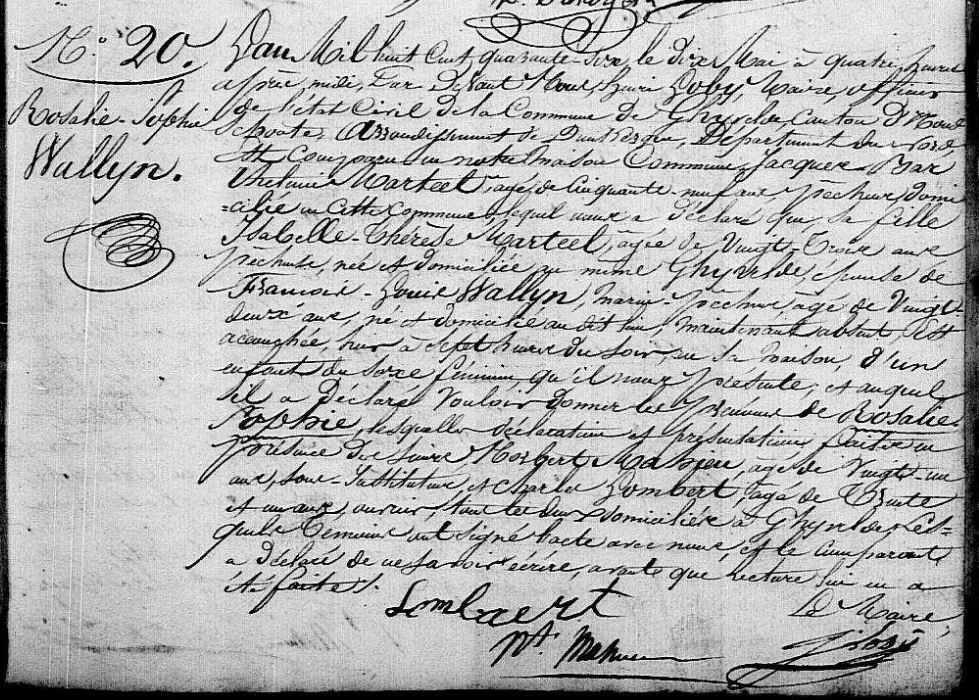 N.° 20.
Rosalie-Sophie
Wallyn.
L'an Mil huit Cent quarante-six, le dix Mai à quatre heures
après midi, Par Devant Nous Henri Maire, officier
de l'état Civil de la Commune de Ghyvelde Canton d'Hond
schoote, Arrondissement de Dunkerque, Département du Nord
Est Comparu en notre maison Commune, Jacques-Bar
thelemi Marteel, agé de Cinquante-neuf ans, pecheur, domi
=cilié en cette commune lequel nous a déclaré que, sa fille
Isabelle-Thérèse Marteel, agée de Vingt-Trois ans
pecheuse, née et domiciliée au même Ghyvelde, épouse de
Francois-Louis Wallyn, marin-pecheur, agé de Vingt-
deux ans, né et domicilié au dit lieu, maintenant absent, Est
accouchée, hier à Sept heures du soir en sa maison, d'un
enfant du sexe féminin qu'il nous présente, et auquel
il a déclaré Vouloir donner les prénoms de Rosalie-
Sophie, lesquelles déclaration et présentation faites en
présence des sieurs Norbert Mahieu, agé de Vingt-un
ans, sous-Instituteur et Charles Lombert, agé de Trente
et un ans, ouvrier, tous les deux domiciliés à Ghyvelde, Les-
quels Temoins ont signé l'acte avec nous, et le Comparant
a déclaré de ne savoir écrire, après que lecture lui en a
été faite.
Lombaert
Le Maire,
Nt. Mahieu